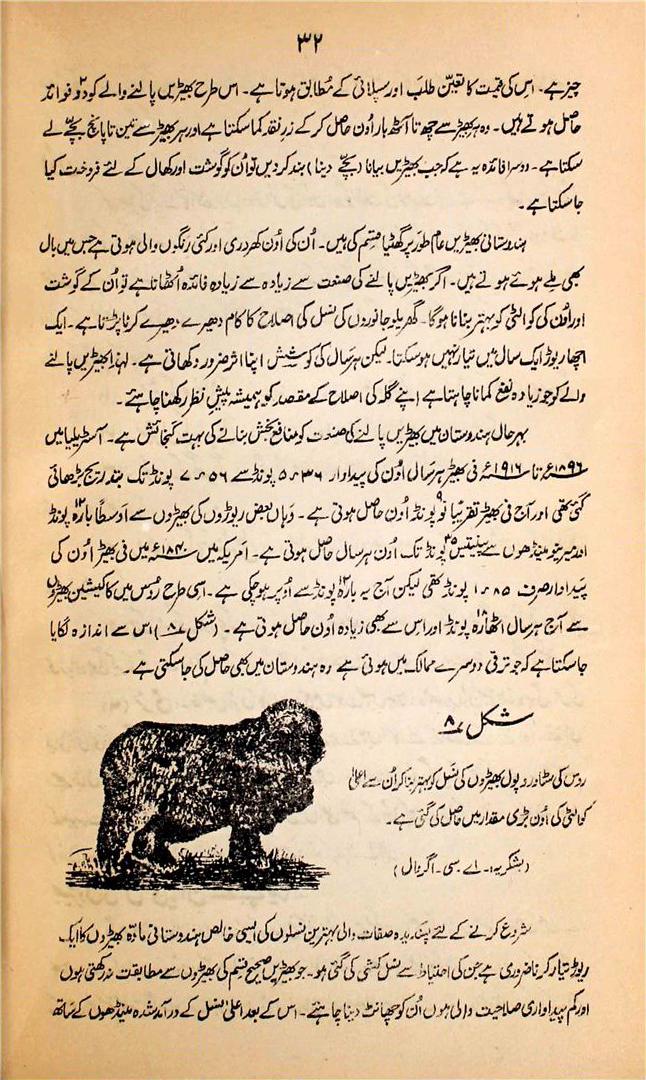 ۳۲
چیز ہے۔ اس کی قیمت کا تعین طلب اور سپلائی کے مطابق ہوتا ہے۔ اس طرح بھیڑیں پالنے والے کو دو۲ فوائد
حاصل ہوتے ہیں۔ وہ ہر بھیڑ سے چھ تا آٹھ بار اُون حاصل کر کے زرِ نقد کما سکتا ہے اور ہر بھیڑ سے تین تا پانچ بچّے لے
سکتا ہے۔ دوسرا فائدہ یہ ہے کہ جب بھیڑیں بیانا (بچّے دینا) بند کر دیں تو اُن کو گوشت اور کھال کے لئے فروخت کیا
جا سکتا ہے۔
ہندوستانی بھیڑیں عام طور پر گھٹیا قسم کی ہیں۔ اُن کی اُون کھردری اور کئی رنگوں والی ہوتی ہے جس میں بال
بھی ملے ہوئے ہوتے ہیں۔ اگر بھیڑیں پالنے کی صنعت سے زیادہ سے زیادہ فائدہ اُٹھانا ہے تو اُن کے گوشت
اور اُون کی کوالٹی کو بہتر بنانا ہوگا۔ گھریلو جانوروں کی نسل کی اصلاح کا کام دھیرے دھیرے کرنا پڑتا ہے۔ ایک
اچھا ریوڑ ایک سال میں تیار نہیں ہو سکتا۔ لیکن ہر سال کی کوشش اپنا اثر ضرور دکھاتی ہے۔ لہٰذا بھیڑیں پالنے
والے کو جو زیادہ نفع کمانا چاہتا ہے اپنے گلہ کی اصلاح کے مقصد کو ہمیشہ پیشِ نظر رکھنا چاہئے۔
بہرحال ہندوستان میں بھیڑیں پالنے کی صنعت کو منافع بخش بنانے کی بہت گنجائش ہے۔ آسٹریلیا میں
۱۸۹۶ء تا ۱۹۱۶ء فی بھیڑ ہر سال اُون کی پیداوار ۳۶ء۵ پونڈ سے ۵۶ء۷ پونڈ تک بتدریج بڑھائی
گئی تھی اور آج فی بھیڑ تقریباً نو۹ پونڈ اُون حاصل ہوتی ہے۔ وہاں بعض ریوڑوں کی بھیڑوں سے اوسطاً بارہ۱۲ پونڈ
اور میرینو مینڈھوں سے پینتیس۳۵ پونڈ تک اُون ہر سال حاصل ہوتی ہے۔ امریکہ میں ۱۸۴۰ء میں فی بھیڑ اُون کی
پیداوار صرف ۸۵ء۱ پونڈ تھی لیکن آج یہ بارہ۱۲ پونڈ سے اُوپر ہو چکی ہے۔ اسی طرح رُوس میں کاکیشین بھیڑوں
سے آج ہر سال اٹھارہ۱۸ پونڈ اور اس سے بھی زیادہ اُون حاصل ہوتی ہے۔ (شکل ۸) اس سے اندازہ لگایا
جا سکتا ہے کہ جو ترقی دوسرے ممالک میں ہوئی ہے وہ ہندوستان میں بھی حاصل کی جا سکتی ہے۔
شکل ۸
روس کی سٹاوروپول بھیڑوں کی نسل کو بہتر بنا کر اُن سے اعلیٰ
کوالٹی کی اُون بڑی مقدار میں حاصل کی گئی ہے۔
(بشکریہ: اے۔ سی۔ اگروال)
شروع کرنے کے لئے پسندیدہ صفات والی بہترین نسلوں کی ایسی خالص ہندوستانی مادّہ بھیڑوں کا ایک
ریوڑ تیار کرنا ضروری ہے جن کی احتیاط سے نسل کشی کی گئی ہو۔ جو بھیڑیں صحیح قسم کی بھیڑوں سے مطابقت نہ رکھتی ہوں
اور کم پیداواری صلاحیت والی ہوں اُن کو چھانٹ دینا چاہئے۔ اس کے بعد اعلیٰ نسل کے درآمد شدہ مینڈھوں کے ساتھ